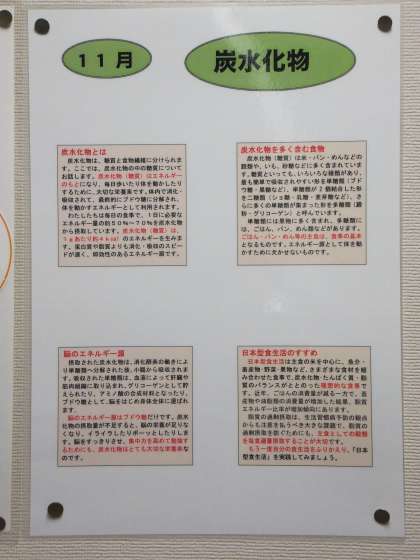 11月
炭水化物
炭水化物とは
炭水化物は、糖質と食物繊維に分けられま
す。ここでは、炭水化物の中の糖質についてお
話します。炭水化物（糖質）はエネルギー
のもとになり、毎日歩いたり体を動かしたり
するために、大切な栄養素です。体内で消化・
吸収されて、最終的にブドウ糖に分解され、
体を動かすエネルギーとして利用されます。
わたしたちは毎日の食事で、1日に必要な
エネルギー量の約50%～70%を炭水化物
から摂取しています。炭水化物（糖質）は、
1gあたり約4kcalのエネルギーを生みま
す。蛋白質や脂質よりも消化・吸収のスピー
ドが速く、即効性のあるエネルギー源です。
炭水化物を多く含む食物
炭水化物（糖質）は米・パン・めんなどの
穀類や、いも、砂糖などに多く含まれていま
す。糖質といっても、いろいろな種類があり、
最も簡単で吸収されやすい形を単糖類（ブド
ウ糖・果糖など）、単糖類が2個結合した形
を二糖類（ショ糖・乳糖・麦芽糖など）、さ
らに多くの単糖類が集まった形を多糖類（澱
粉・グリコーゲン）と呼んでいます。
単糖類には果物に多く含まれ、多糖類に
は、ごはん、パン、めん類などがあります。
ごはん・パン・めん等の主食は、食事の基本
となるものです。エネルギー源として体を動
かすために欠かせないものです。
脳のエネルギー源
摂取された炭水化物は、消化酵素の働きによ
り単糖類へ分解された後、小腸から吸収されま
す。吸収された単糖類は、血液によって肝臓や
筋肉組織に取り込まれ、グリコーゲンとして貯
えられたり、アミノ酸の合成材料となったり、
ブドウ糖として、脳をはじめ身体全体に運ばれ
ます。
脳のエネルギー源はブドウ糖だけです。炭水
化物の摂取量が不足すると、脳の栄養が足りな
くなり、イライラしたりボーッとしたりしま
す。脳をすっきりさせ、集中力を高めて勉強す
るためにも、炭水化物はとても大切な栄養素な
のです。
日本型食生活のすすめ
日本型食生活は主食の米を中心に、魚介・
畜産物・野菜・果物など、さまざまな食材を組
み合わせた食事で、炭水化物・たんぱく質・脂
質のバランスがとれたとのった理想的な食事で
す。近年、ごはんの消費量が減る一方で、畜
産物や油脂類の消費量が増加した結果、脂質
エネルギー比率が増加傾向にあります。
脂質の過剰摂取は、生活習慣病予防の観点
からも注意を払うべき大きな課題で、脂質の
過剰摂取を防ぐためにも、主食としての穀類
を毎食適量摂取することが大切です。
もう一度自分の食生活をふりかえり、「日本
型食生活」を実践してみましょう。